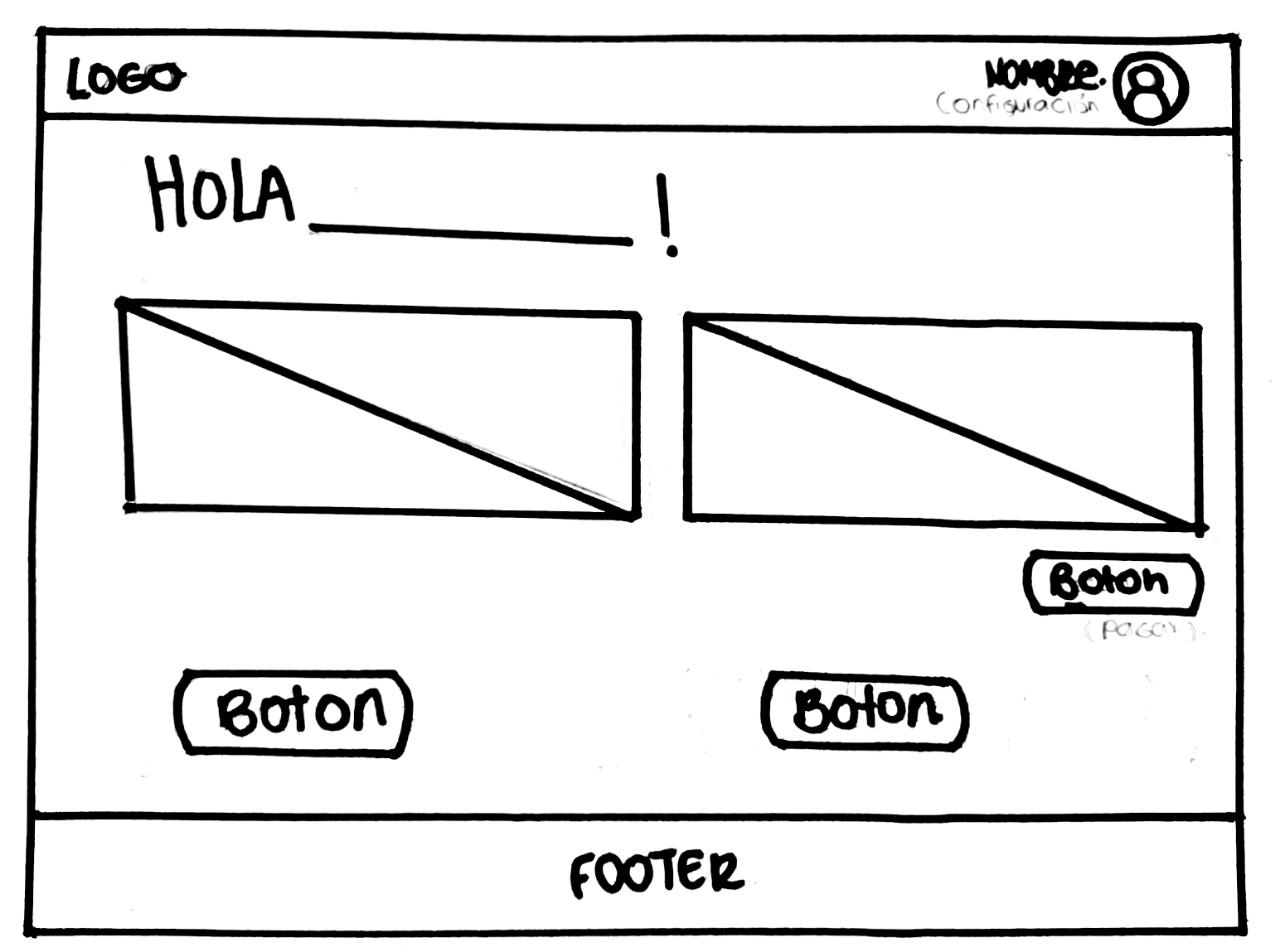 LOGO
NOMBRE.
Configuración
HOLA ________ !
Boton
(PAGAR).
Boton
Boton
FOOTER